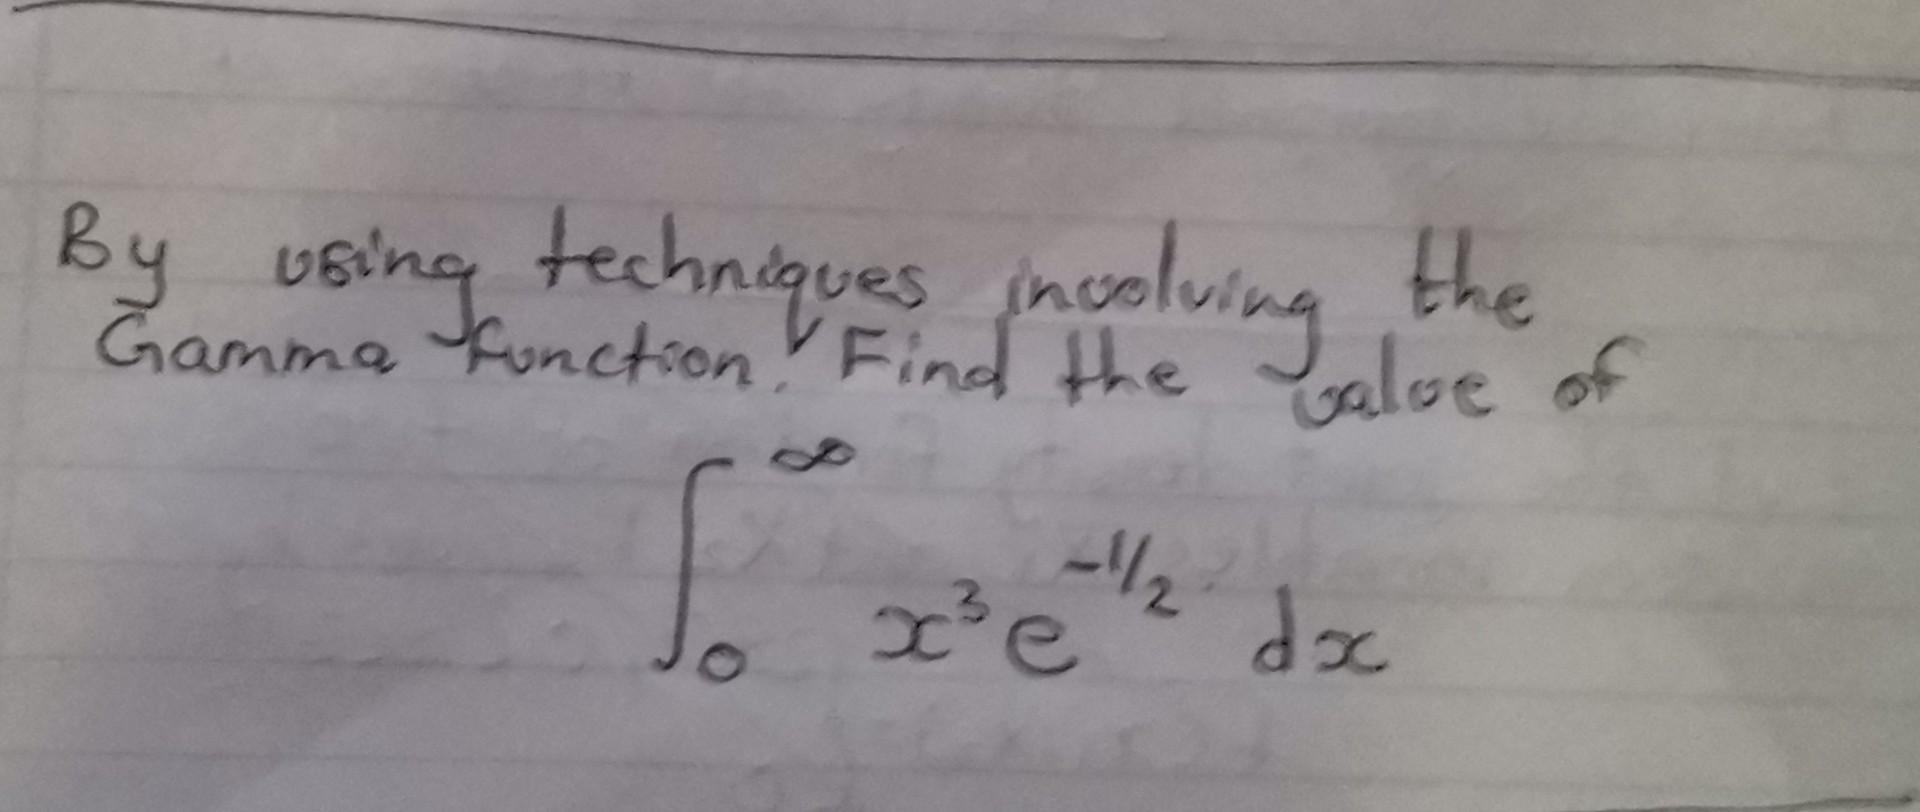 By using techniques involving the
Gamma function. Find the value of
∫₀^∞ x³ e^(-1/2) dx